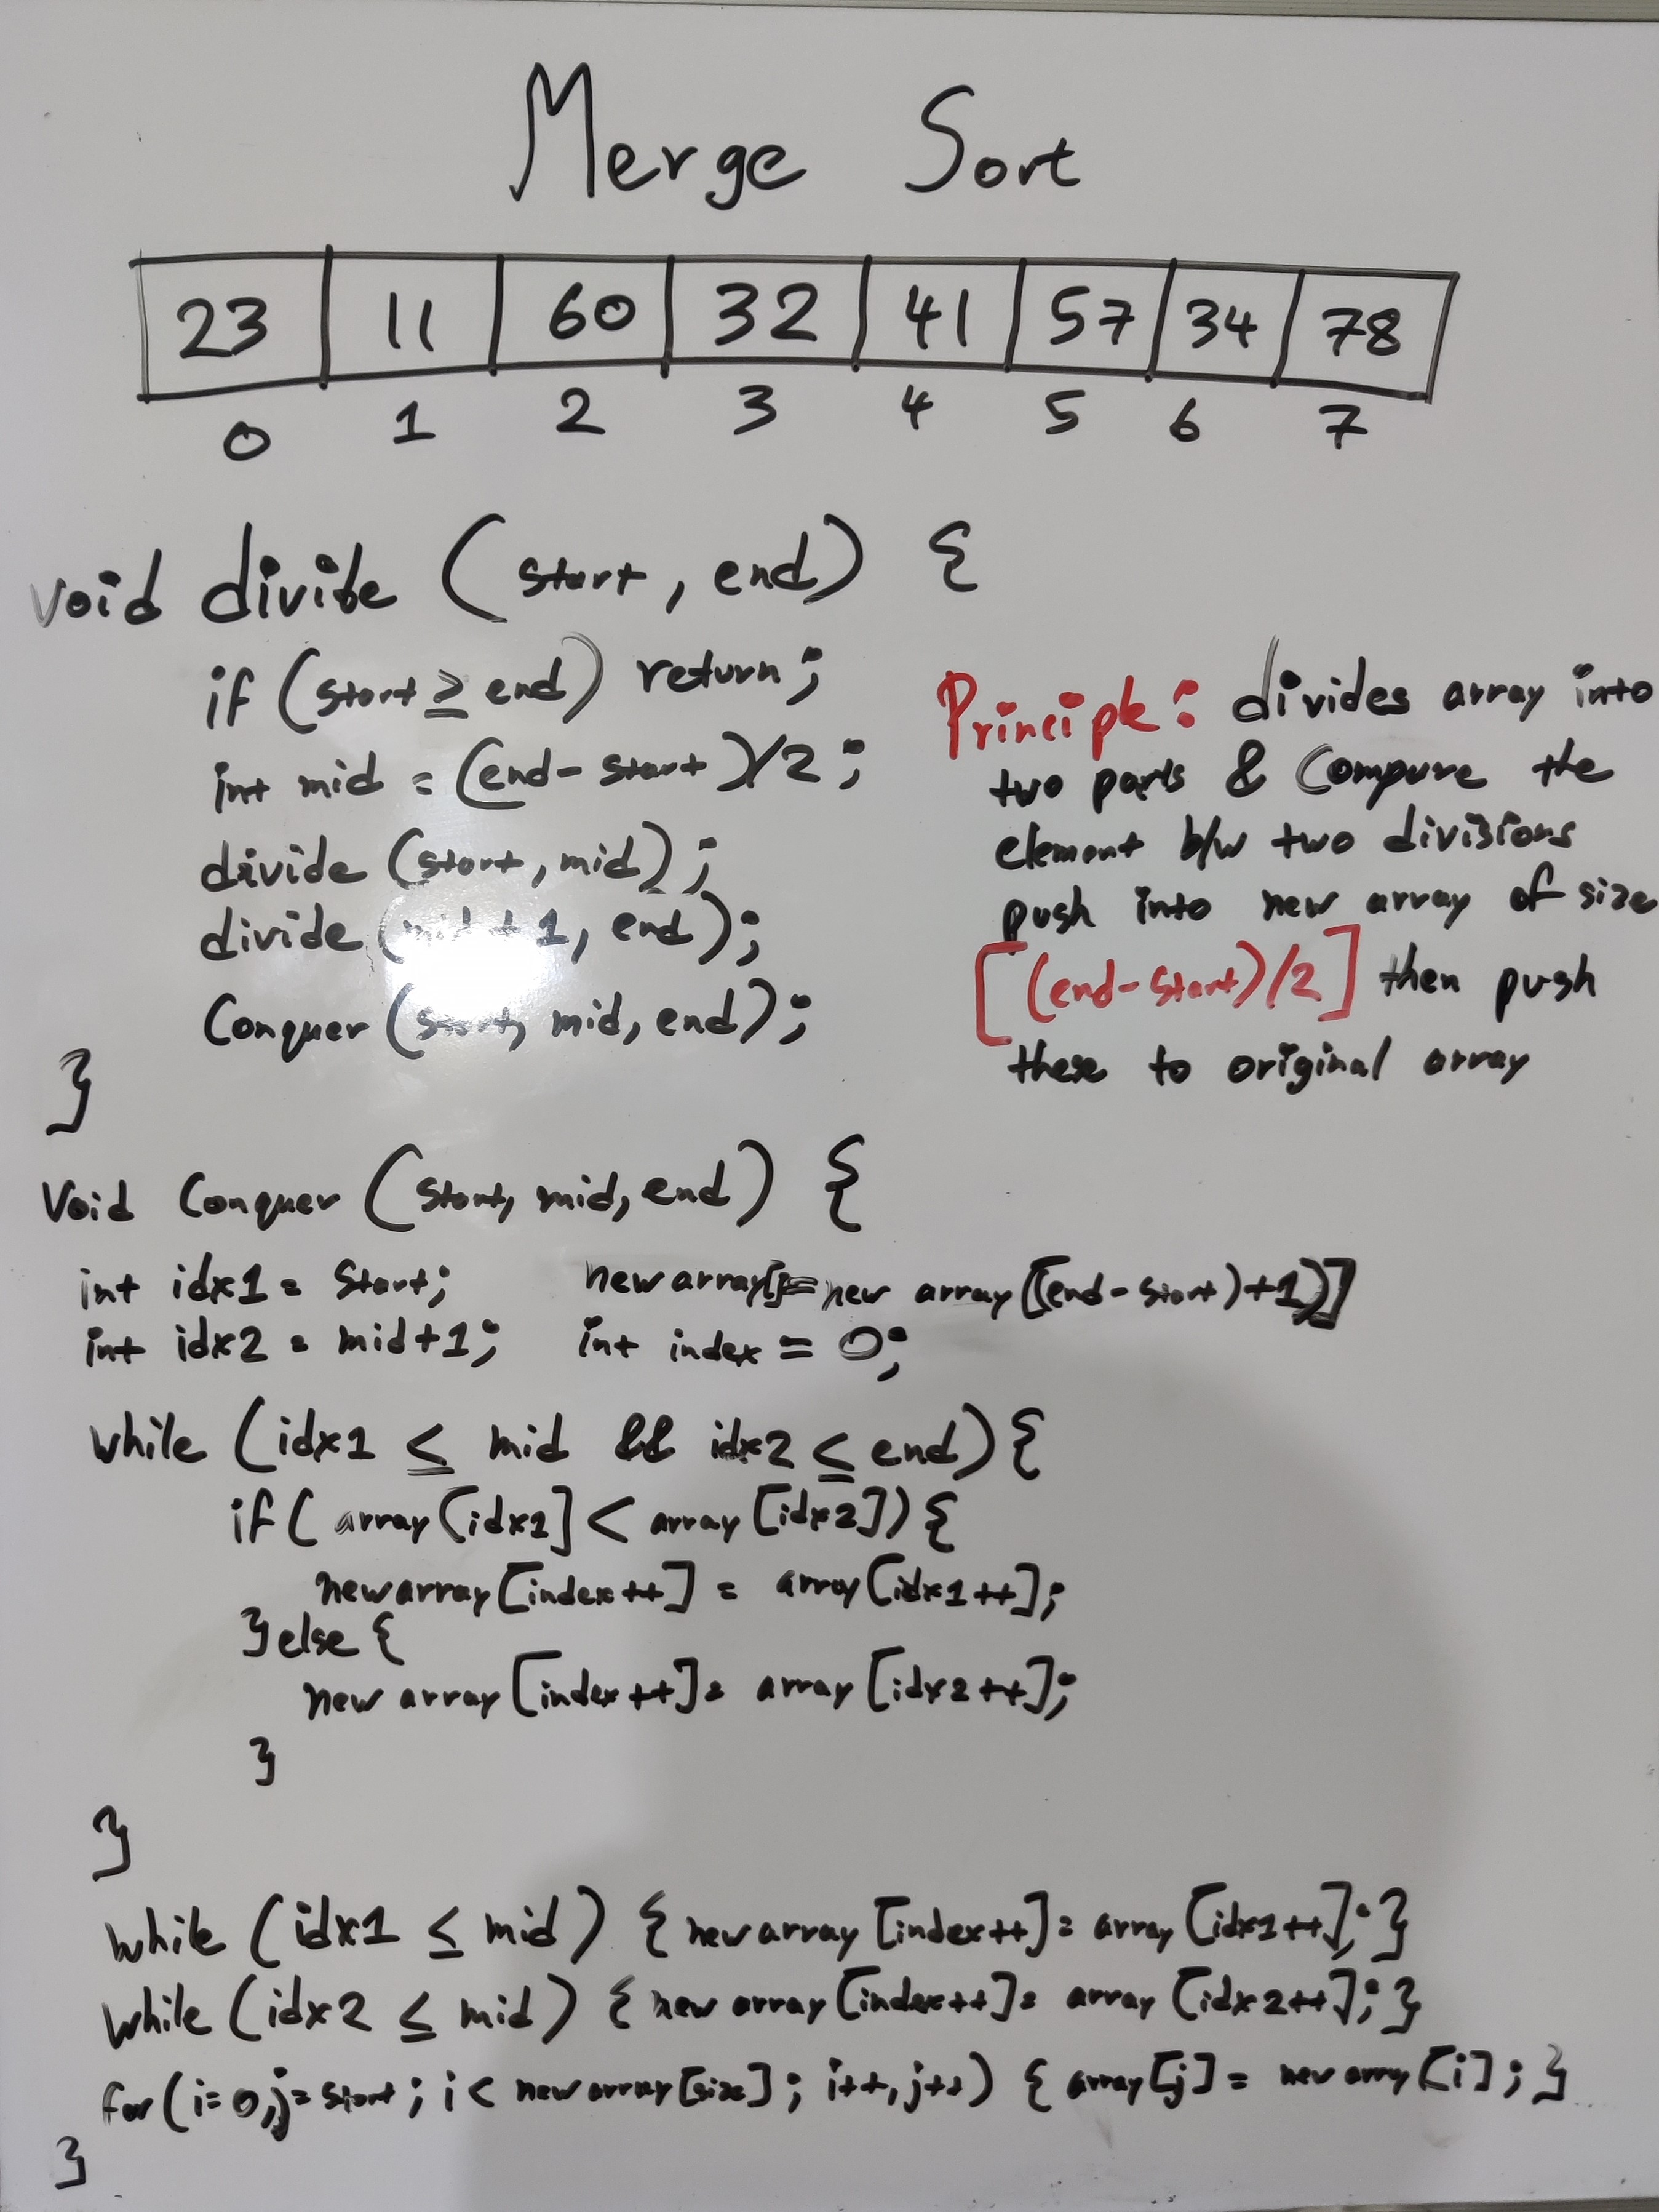 Merge Sort
23 11 60 32 41 57 34 78
0 1 2 3 4 5 6 7
void divide (start, end) {
if (start ≥ end) return;
int mid = (end - start)/2;
divide (start, mid);
divide (mid+1, end);
Conquer (start, mid, end);
}
Principle: divides array into
two parts & Compare the
element b/w two divisions
push into new array of size
[(end-start)/2] then push
these to original array
Void Conquer (start, mid, end) {
int idx1 = Start; newarray[]= new array([end-start)+1)]
int idx2 = mid+1; int index = 0;
while (idx1 ≤ mid && idx2 ≤ end) {
if (array[idx1] < array[idx2]) {
newarray[index++] = array[idx1++];
} else {
new array[index++] = array[idx2++];
}
}
while (idx1 ≤ mid) { newarray[index++] = array[idx1++]; }
while (idx2 ≤ mid) { new array[index++] = array[idx2++]; }
for (i=0, j=start; i < newarray[size]; i++, j++) { array[j] = new array[i]; }
}